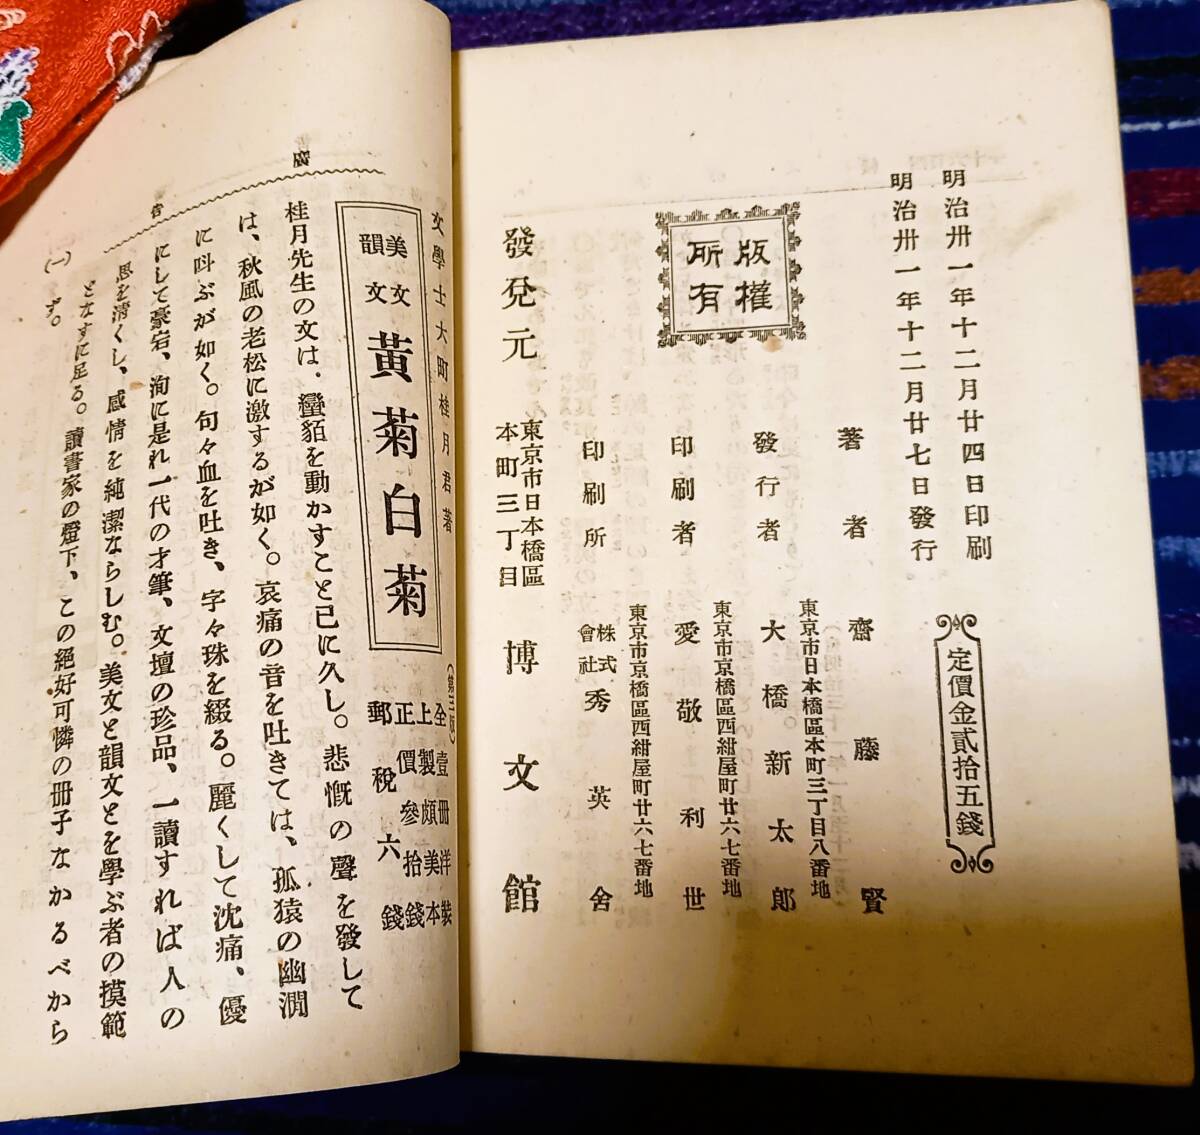 明治卅一年十二月廿四日印刷
明治卅一年十二月廿七日發行
定價金貳拾五錢
版權所有
著者 齋藤賢
東京市日本橋區本町三丁目八番地
發行者 大橋新太郎
東京市京橋區西紺屋町廿六七番地
印刷者 愛敬利世
東京市京橋區西紺屋町廿六七番地
印刷所 株式會社秀英舍
發兌元 東京市日本橋區本町三丁目 博文館
廣告
文學士大町桂月君著
美文韻文 黃菊白菊
(第三版)
全壹冊洋裝
上製頗美本
正價參拾錢
郵稅六錢
桂月先生の文は、蠻貊を動かすこと已に久し。悲慨の聲を發して
は、秋風の老松に激するが如く。哀痛の音を吐きては、孤猿の幽澗
に叫ぶが如く。句々血を吐き、字々珠を綴る。麗くして沈痛、優
にして豪宕、洵に是れ一代の才筆、文壇の珍品、一讀すれば人の
思を淸くし、感情を純潔ならしむ。美文と韻文とを學ぶ者の摸範
となすに足る。讀書家の燈下、この絕好可憐の冊子なかるべから
ず。
(一)